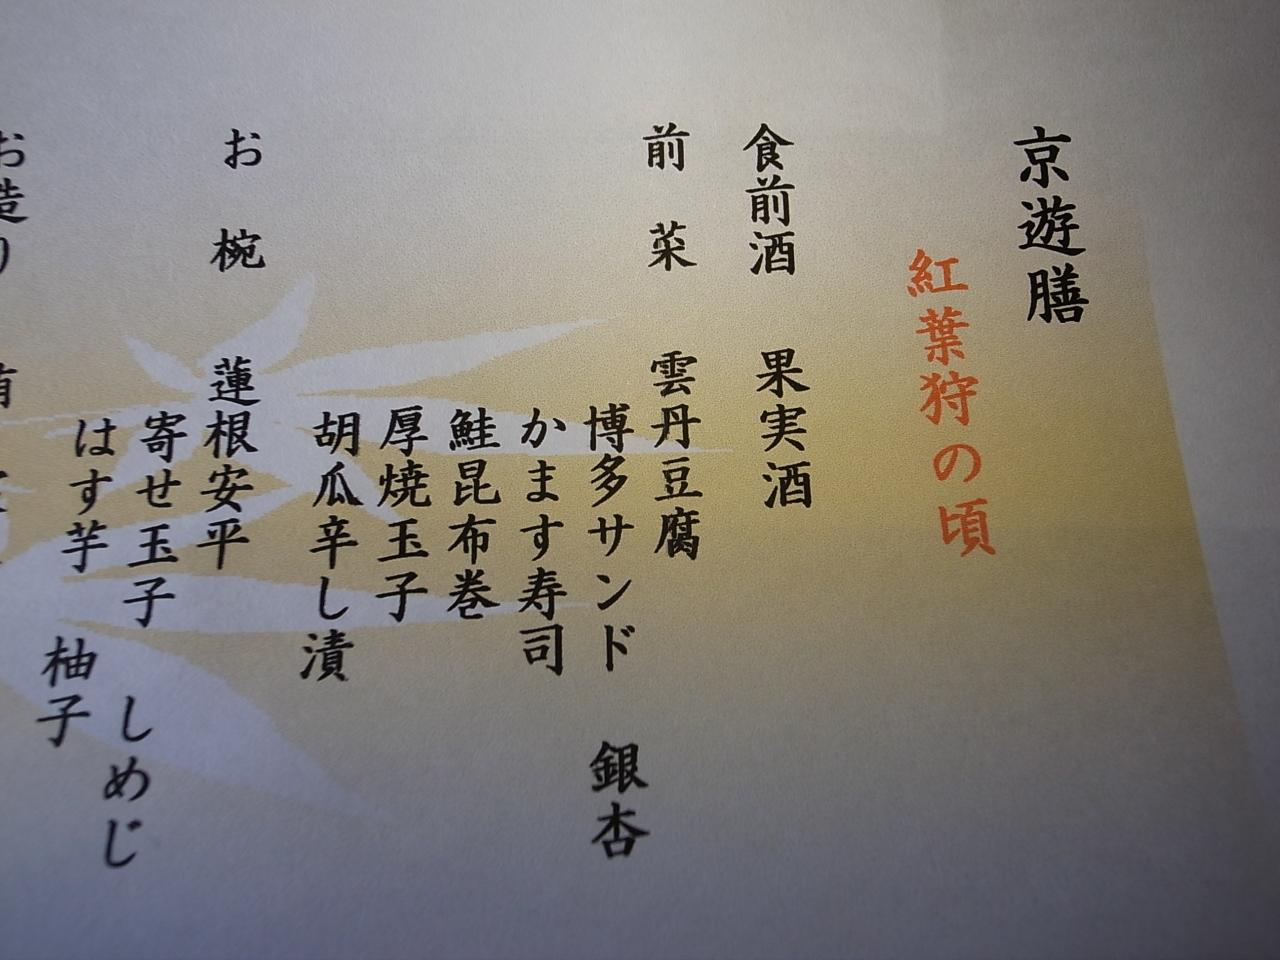 京遊膳
紅葉狩の頃
食前酒　果実酒
前　菜　雲丹豆腐
博多サンド　銀杏
かます寿司
鮭昆布巻
厚焼玉子
胡瓜辛し漬
お　椀　蓮根安平
寄せ玉子　しめじ
はす芋　柚子
お造り